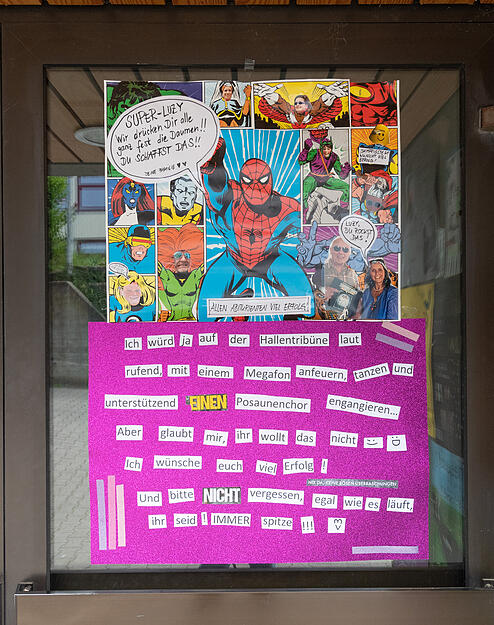 SUPER-LUZY
Wir drücken Dir alle
ganz fest die Daumen!!
DU SCHAFFST DAS!!
LUZY,
DU ROCKST
DAS!
ALLEN ABITURIENTEN VIEL ERFOLG!
Ich würd ja auf der Hallentribüne laut
rufend, mit einem Megafon anfeuern, tanzen und
unterstützend EINEN Posaunenchor engangieren...
Aber glaubt mir, ihr wollt das nicht
Ich wünsche euch viel Erfolg !
Und bitte NICHT vergessen, egal wie es läuft,
ihr seid ! IMMER spitze !!!